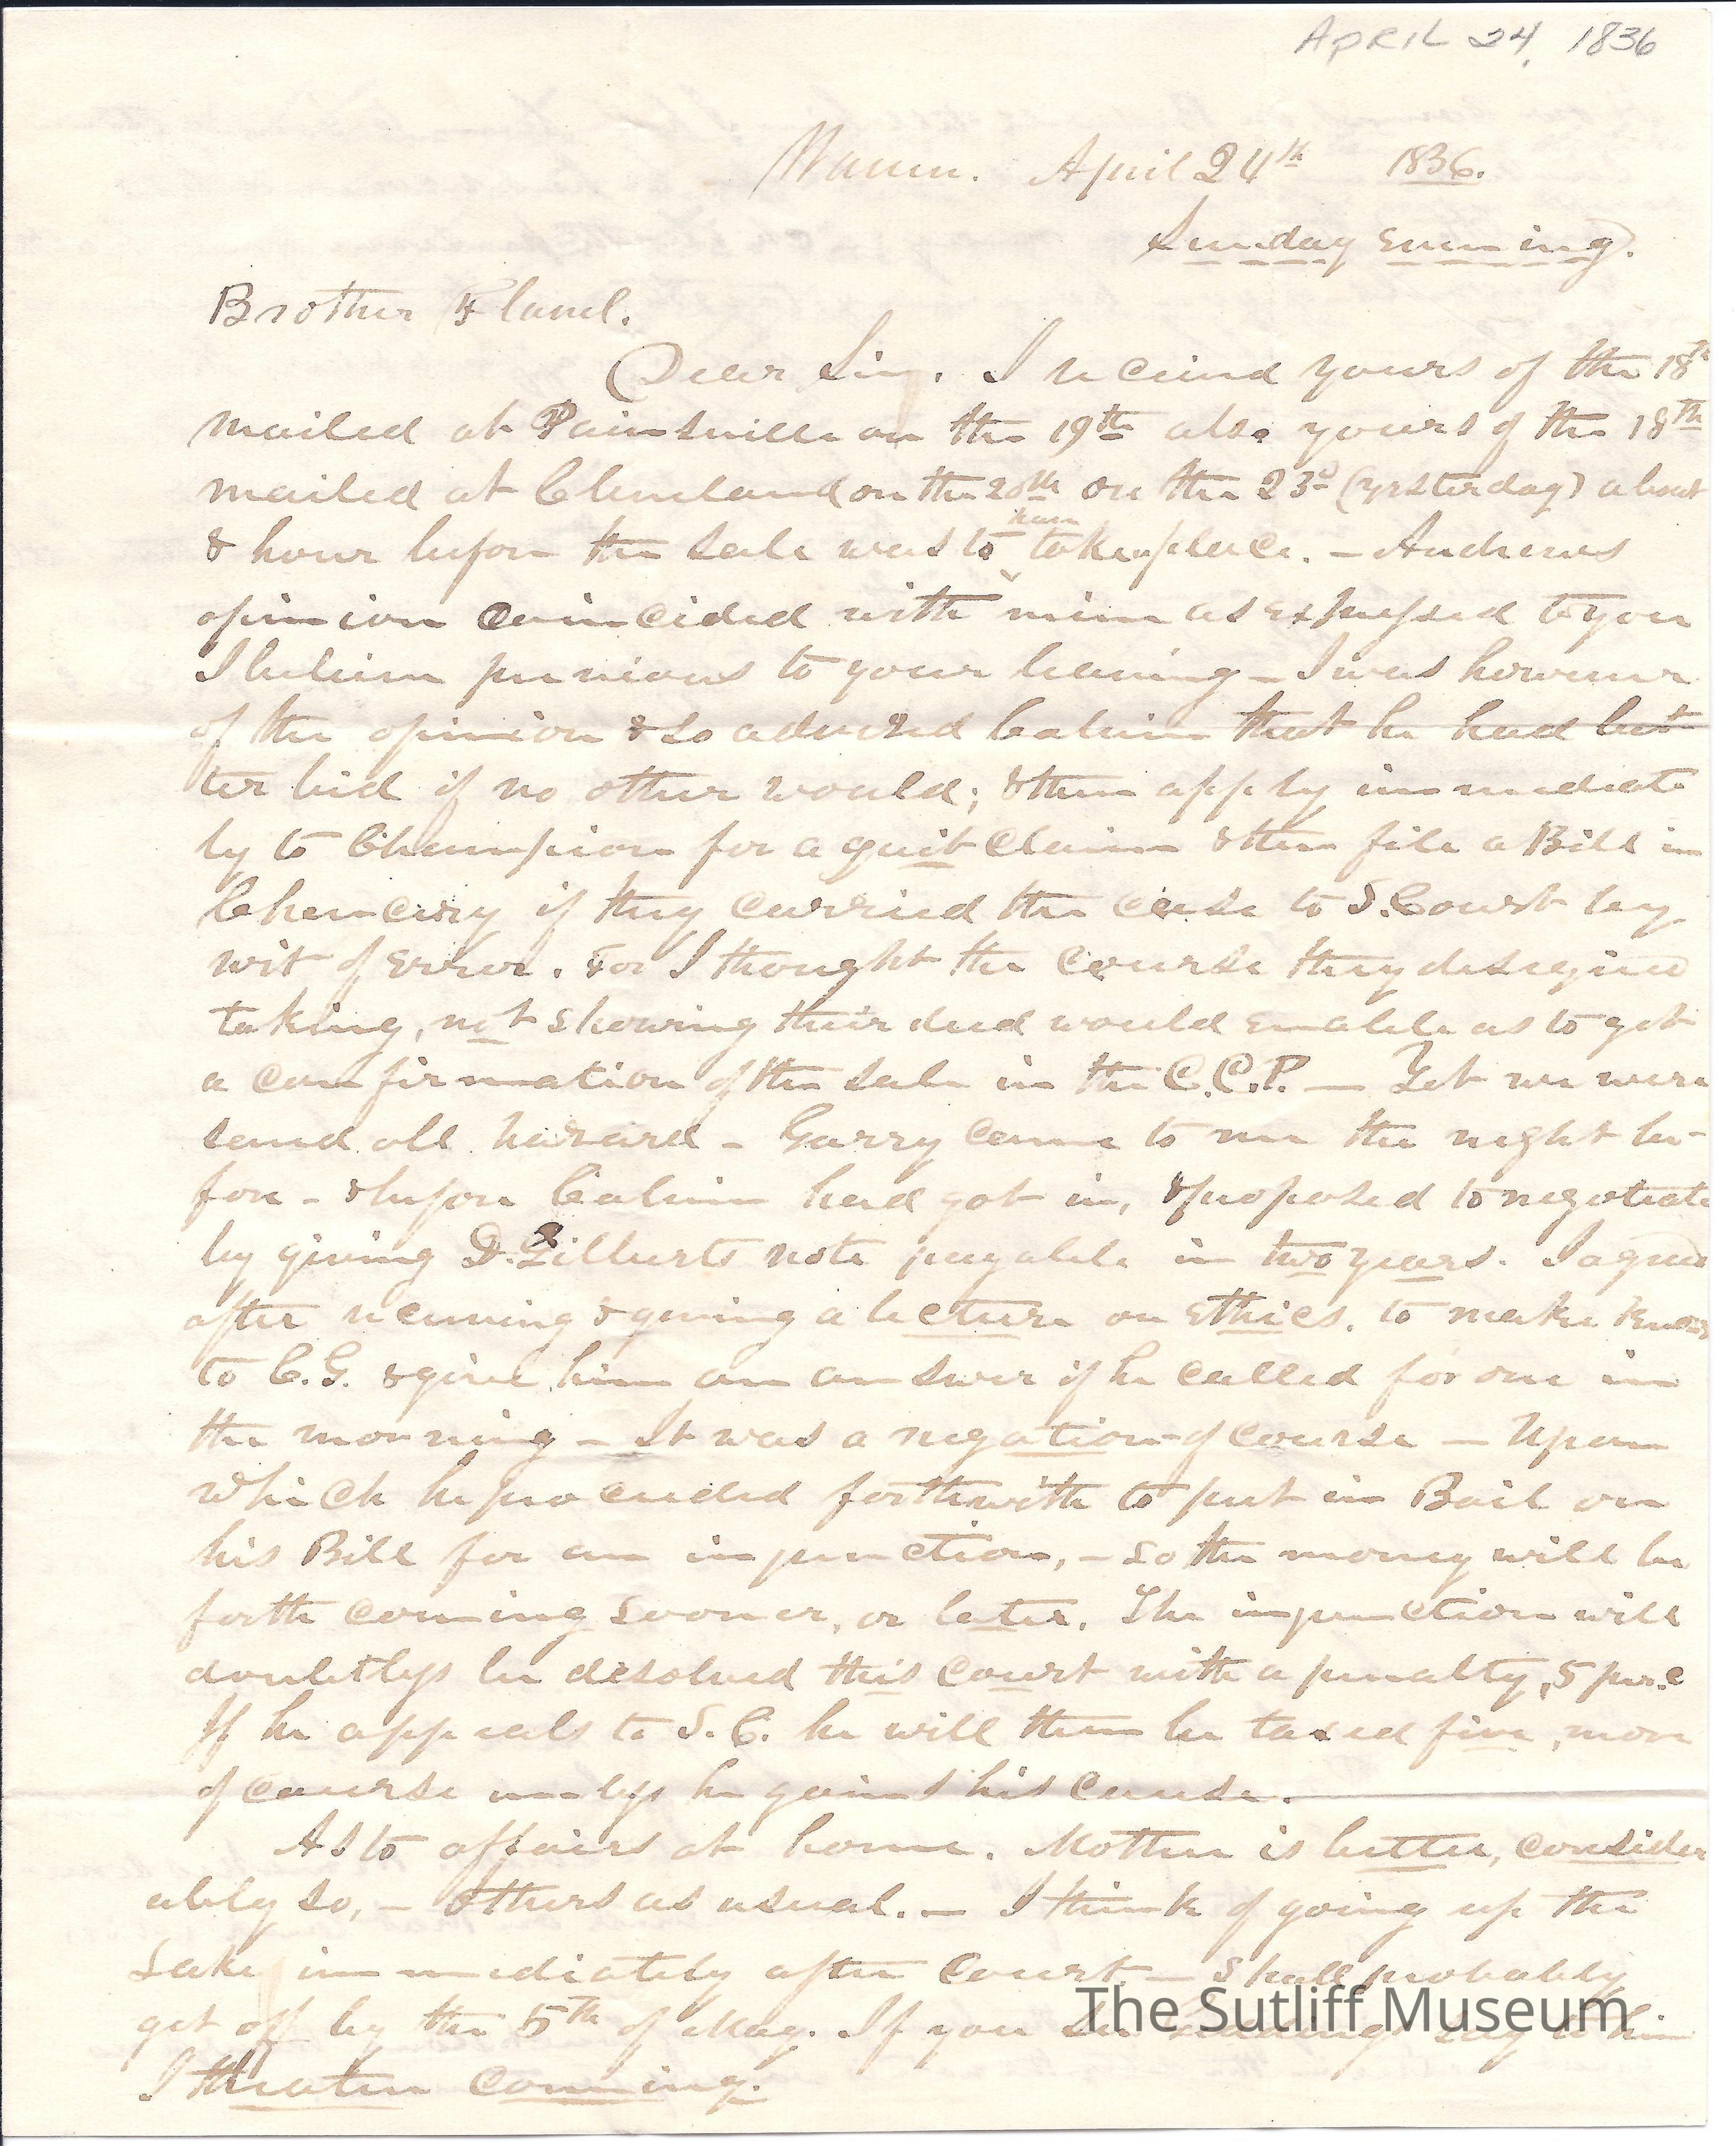 APRIL 24, 1836
Warren. April 24th 1836.
Sunday evening.
Brother Flavel.
Dear Sir, I received yours of the 18th
mailed at Painsville on the 19th also yours of the 18th
mailed at Cleveland on the 20th on the 23d (yesterday) about
& hour before the sale was to have taken place. – Andrews
opinion coincided with mine as expressed to you
I believe previous to your leaving – I was however
of the opinion & so advised Calvin that he had bet
ter bid if no other would; & then apply immediate
ly to Champion for a quit claim & then file a Bill in
Chancery if they carried the case to S. Court by
writ of error. For I thought the course they designed
taking, not showing their deed would enable us to get
a confirmation of the sale in the C.C.P. — Yet we were
saved all hazard – Garry came to me the night be-
fore – & before Calvin had got in, & proposed to negotiate
by giving D. Gilberts note payable in two years. I agreed
after receiving & giving a lecture on ethics, to make known
to C.G. & give him an answer if he called for one in
the morning – It was a negation of course — Upon
which he proceeded forthwith to put in Bail on
his Bill for an injunction, – so the money will be
forth coming sooner, or later. The injunction will
doubtless be desolved this court with a penalty, 5 per.c
If he appeals to S.C. he will then be taxed five, more
of course unless he gains his cause.
As to affairs at home. Mother is better, consider
ably so, – others as usual. – I think of going up the
Lake immediately after Court — shall probably
get off by the 5th of May. If you see say to him
I threaten coming.
The Sutliff Museum